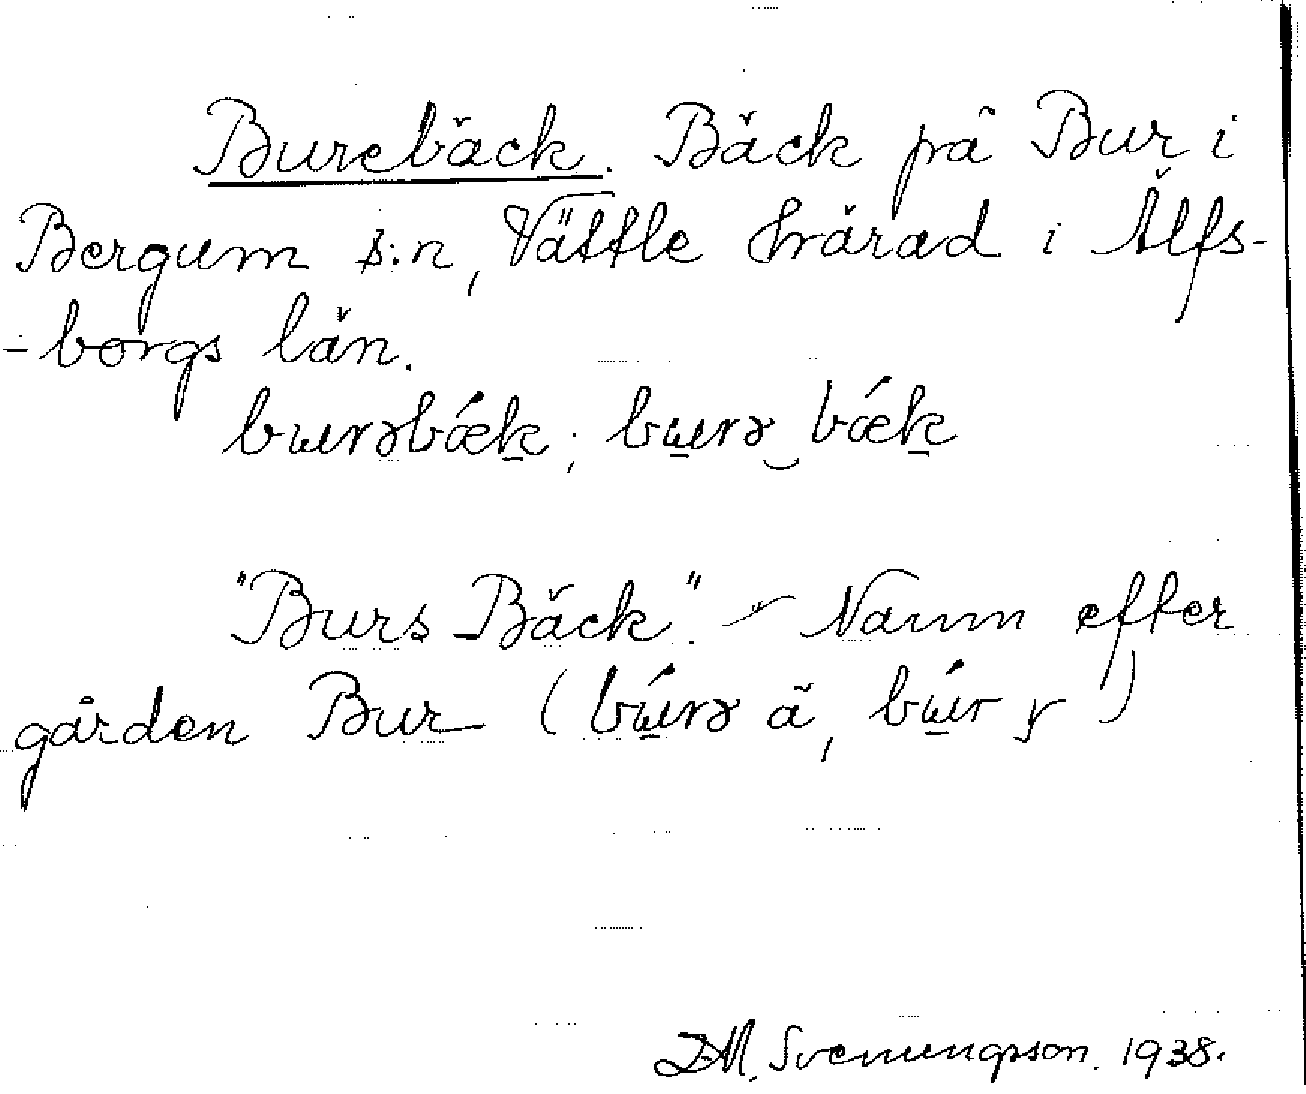 Burebäck. Bäck på Bur i
Bergum s:n, Vättle härad i Älfs-
-borgs län.
burəbǽk; bu̲rə‿bǽk
"Burs Bäck". - Namn efter
gården Bur (bú̲rə ä, bú̲r y)
D.M. Svenungsson. 1938.